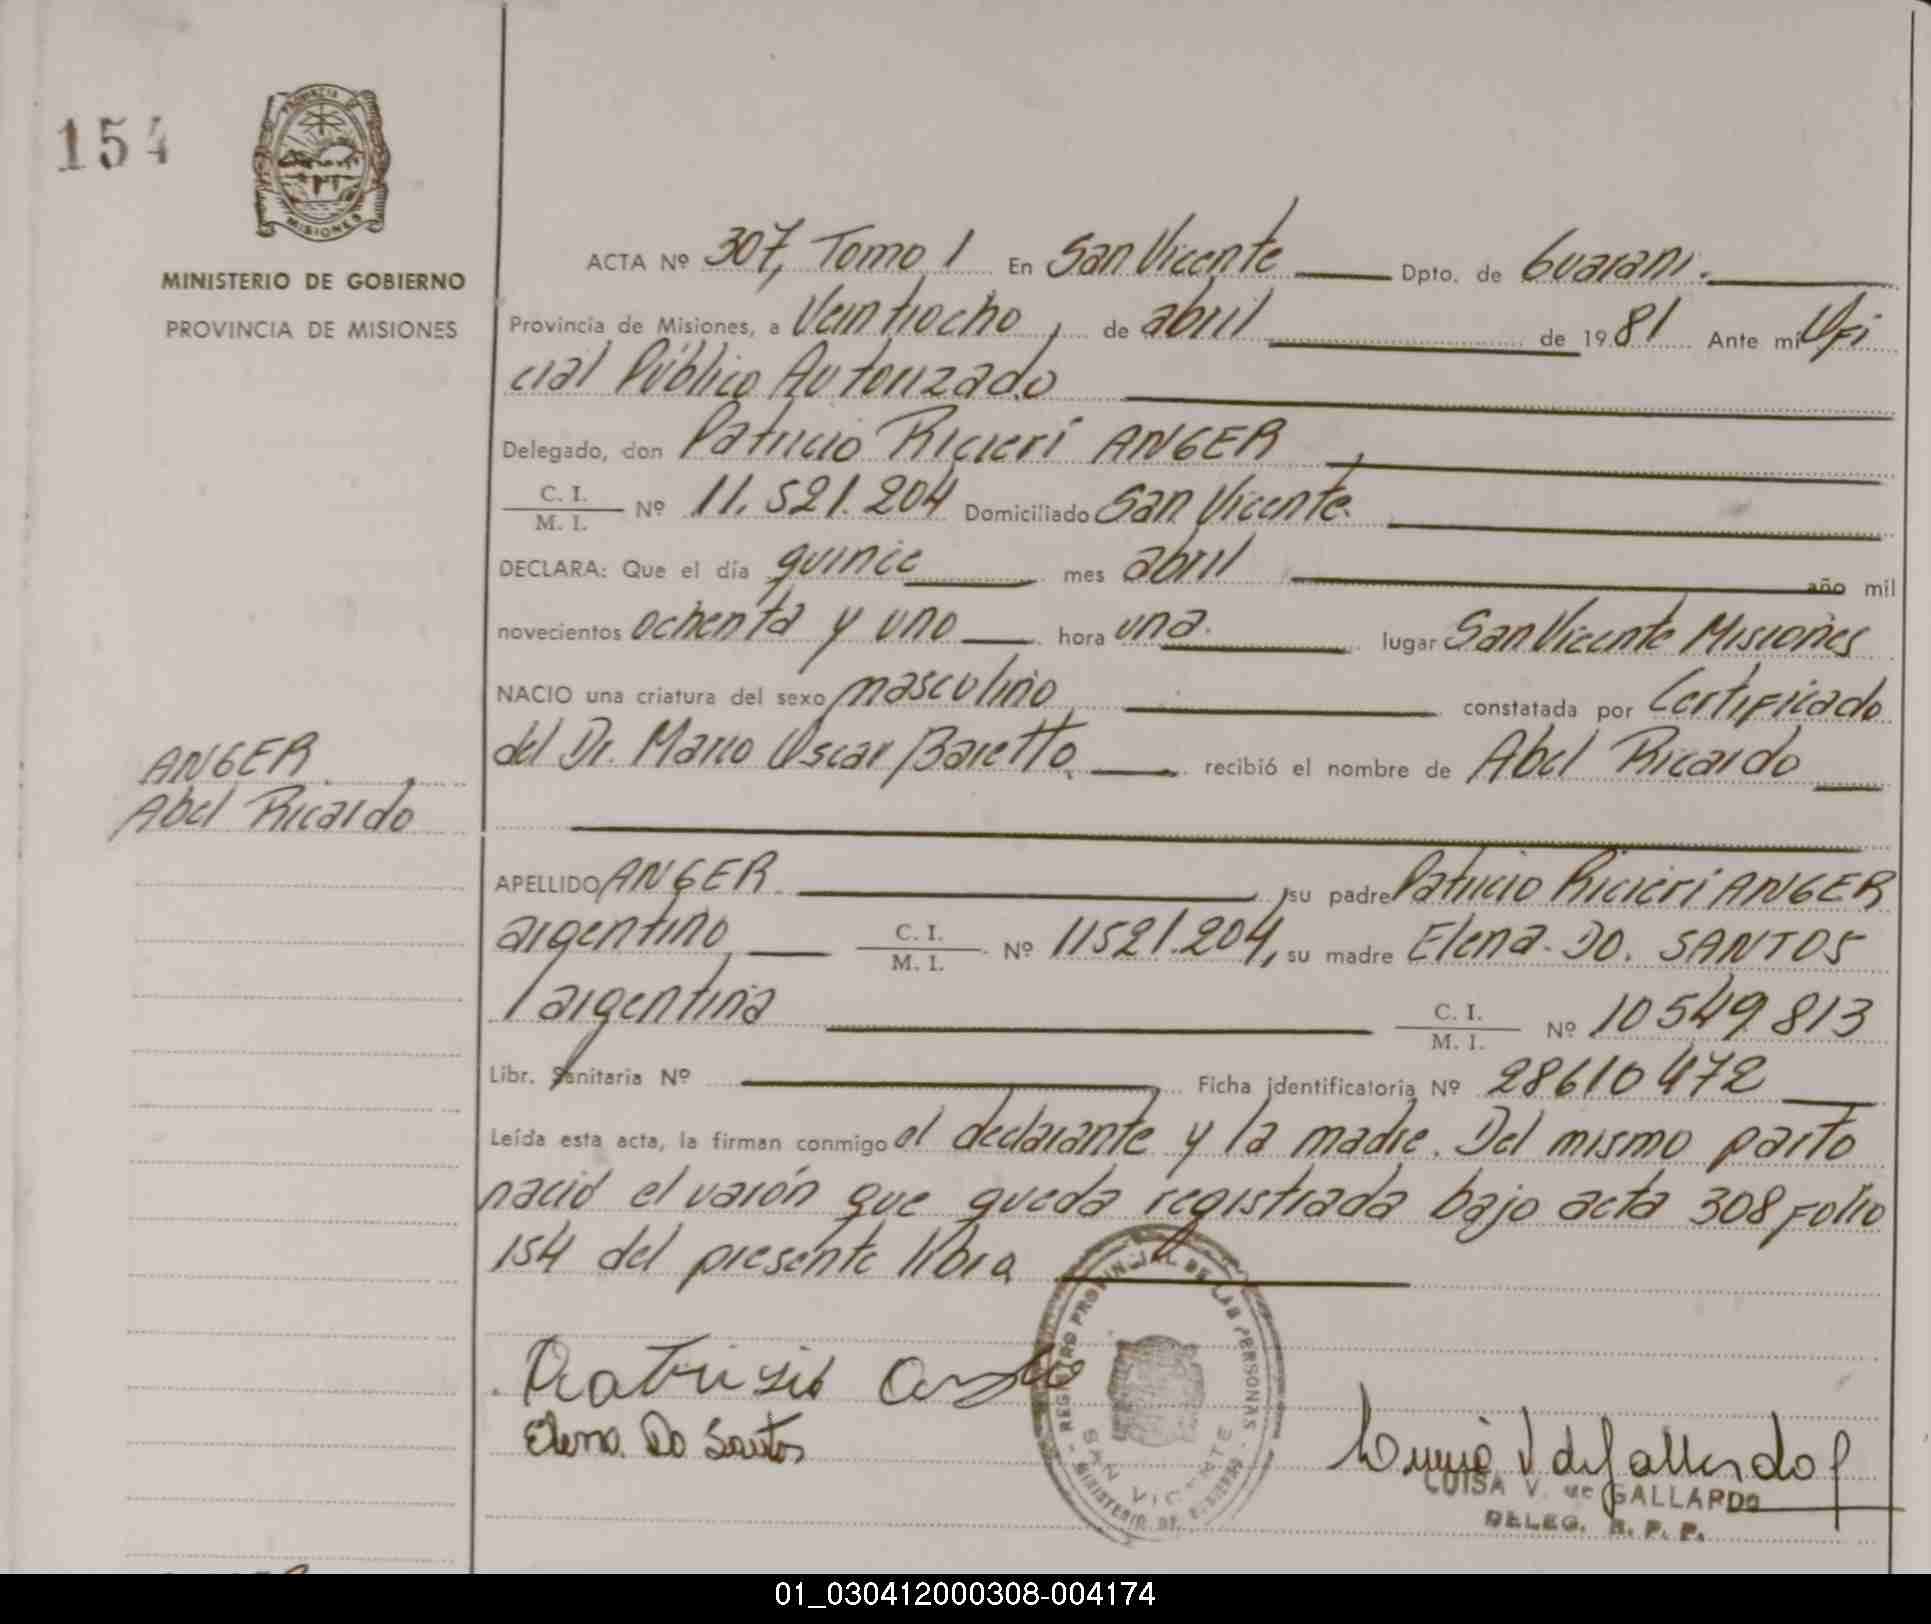 154
PROVINCIA DE
MISIONES
MINISTERIO DE GOBIERNO
PROVINCIA DE MISIONES
ACTA Nº 307, Tomo 1 En San Vicente Dpto. de Guarani.
Provincia de Misiones, a Veintiocho, de abril de 1981 Ante mi Ofi
cial Público Autorizado
Delegado, don Patricio Ricieri ANGER
C. I.
M. I. Nº 11.521.204 Domiciliado San Vicente.
DECLARA: Que el día quince mes abril año mil
novecientos ochenta y uno hora una. lugar San Vicente Misiones
NACIO una criatura del sexo masculino constatada por Certificado
del Dr. Mario Oscar Baretto recibió el nombre de Abel Ricardo
ANGER
Abel Ricardo
APELLIDO ANGER, su padre Patricio Ricieri ANGER
argentino C. I.
M. I. Nº 11521.204, su madre Elena DO. SANTOS
argentina C. I.
M. I. Nº 10549.813
Libr. Sanitaria Nº Ficha identificatoria Nº 28610472
Leída esta acta, la firman conmigo el declarante y la madre. Del mismo parto
nació el varón que queda registrada bajo acta 308 Folio
154 del presente libro
Elena. Do Santos
REGISTRO PROVINCIAL DE LAS PERSONAS
SAN VICENTE
MINISTERIO DE GOBIERNO
LUISA V. de GALLARDO
DELEG. R. P. P.
01_030412000308-004174